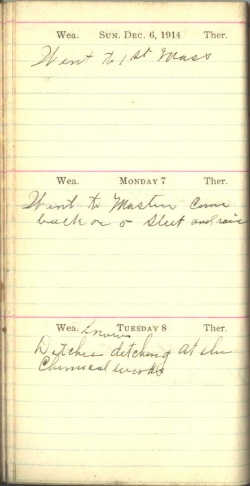 Wea. SUN. DEC. 6, 1914 Ther.
Went to 1st Mass
Wea. MONDAY 7 Ther.
Went to come
back on 5 Sleet and rain
Wea. TUESDAY 8 Ther.
ditching at the
Chemical works